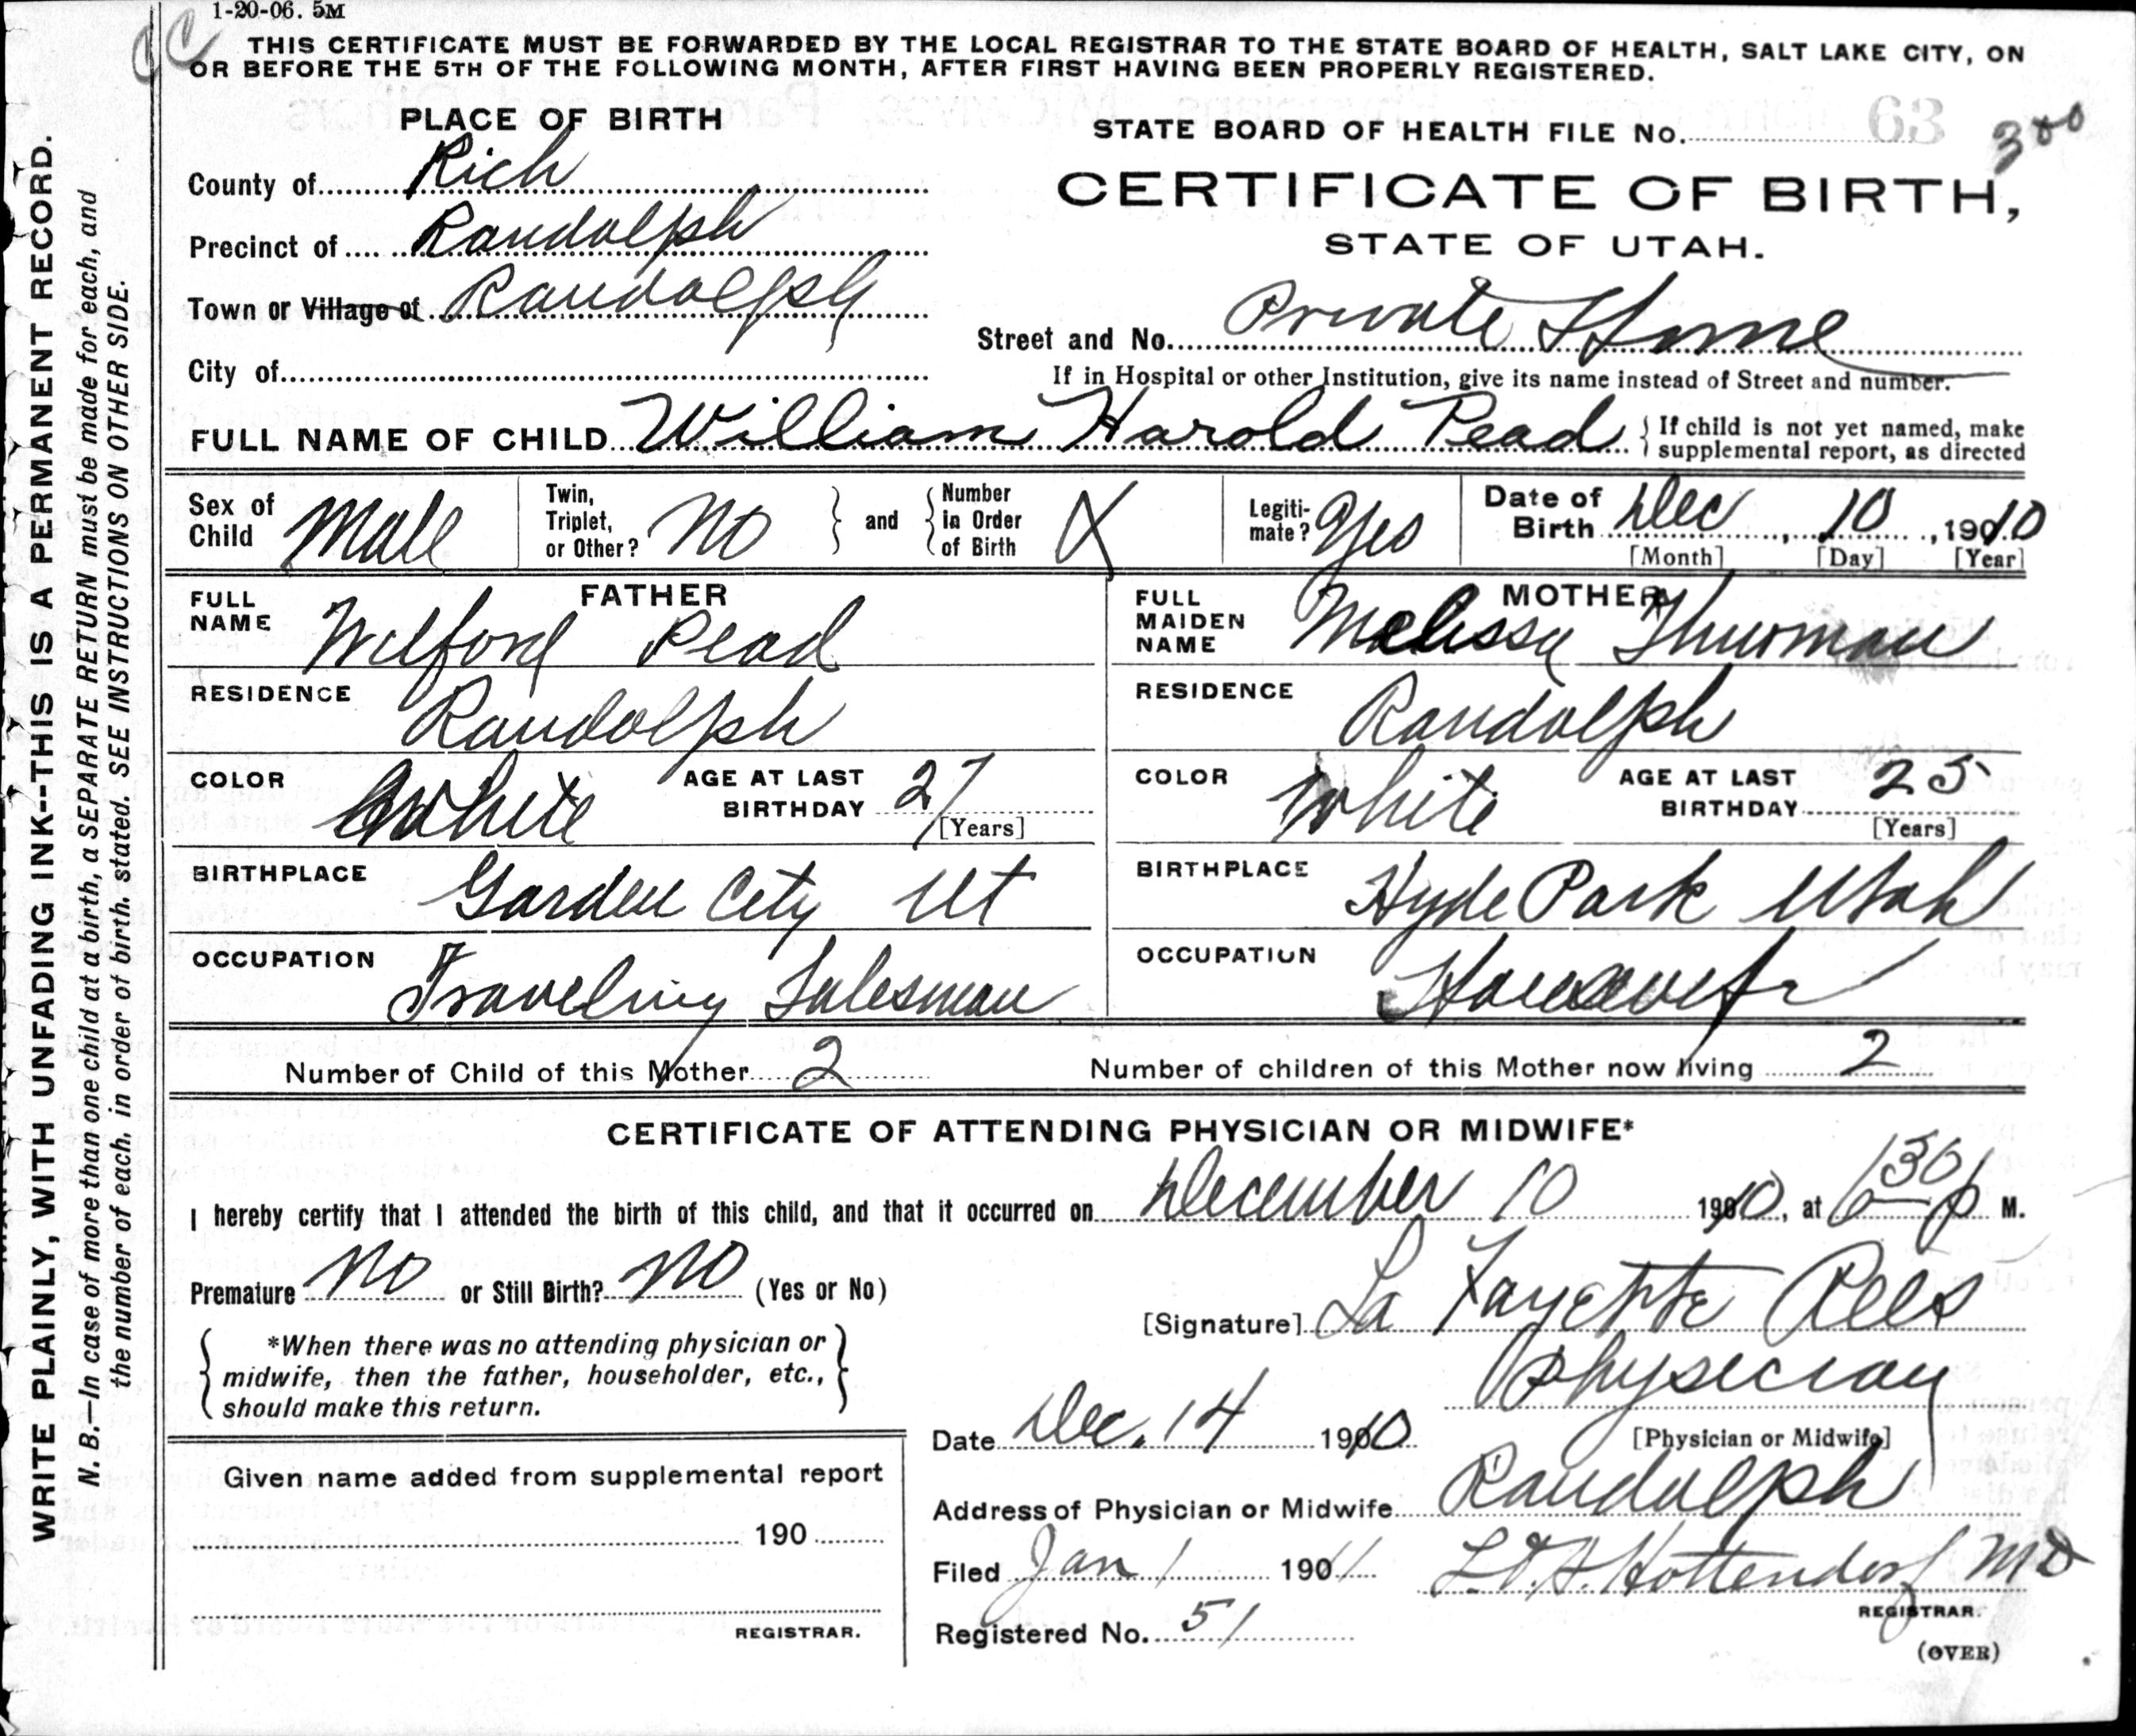 1-20-06. 5M
CC
THIS CERTIFICATE MUST BE FORWARDED BY THE LOCAL REGISTRAR TO THE STATE BOARD OF HEALTH, SALT LAKE CITY, ON
OR BEFORE THE 5TH OF THE FOLLOWING MONTH, AFTER FIRST HAVING BEEN PROPERLY REGISTERED.
WRITE PLAINLY, WITH UNFADING INK--THIS IS A PERMANENT RECORD.
N. B.—In case of more than one child at a birth, a SEPARATE RETURN must be made for each, and
the number of each, in order of birth, stated. SEE INSTRUCTIONS ON OTHER SIDE.
PLACE OF BIRTH
County of Rich
Precinct of Randolph
Town or Village of Randolph
City of
STATE BOARD OF HEALTH FILE No. 63 300
CERTIFICATE OF BIRTH,
STATE OF UTAH.
Street and No. Private Home
If in Hospital or other Institution, give its name instead of Street and number.
FULL NAME OF CHILD William Harold Pead { If child is not yet named, make
supplemental report, as directed
Sex of Child Male
Twin, Triplet, or Other? No } and { Number in Order of Birth X
Legiti-mate? Yes
Date of Birth Dec 10, 1910
[Month] [Day] [Year]
FATHER
FULL NAME Wilford Pead
RESIDENCE Randolph
COLOR White AGE AT LAST BIRTHDAY 27
[Years]
BIRTHPLACE Garden City Ut
OCCUPATION Traveling Salesman
MOTHER
FULL MAIDEN NAME Melissa Thurman
RESIDENCE Randolph
COLOR White AGE AT LAST BIRTHDAY 25
[Years]
BIRTHPLACE Hyde Park Utah
OCCUPATION Housewife
Number of Child of this Mother 2 Number of children of this Mother now living 2
CERTIFICATE OF ATTENDING PHYSICIAN OR MIDWIFE*
I hereby certify that I attended the birth of this child, and that it occurred on December 10 1910, at 630 p M.
Premature No or Still Birth? No (Yes or No)
*When there was no attending physician or
midwife, then the father, householder, etc.,
should make this return.
[Signature] La Fayette Rees
Physician
[Physician or Midwife]
Date Dec. 14 1910
Address of Physician or Midwife Randolph
Filed Jan 1 1911
Hottendorf MD
REGISTRAR.
Registered No. 51
(OVER)
Given name added from supplemental report
190
REGISTRAR.